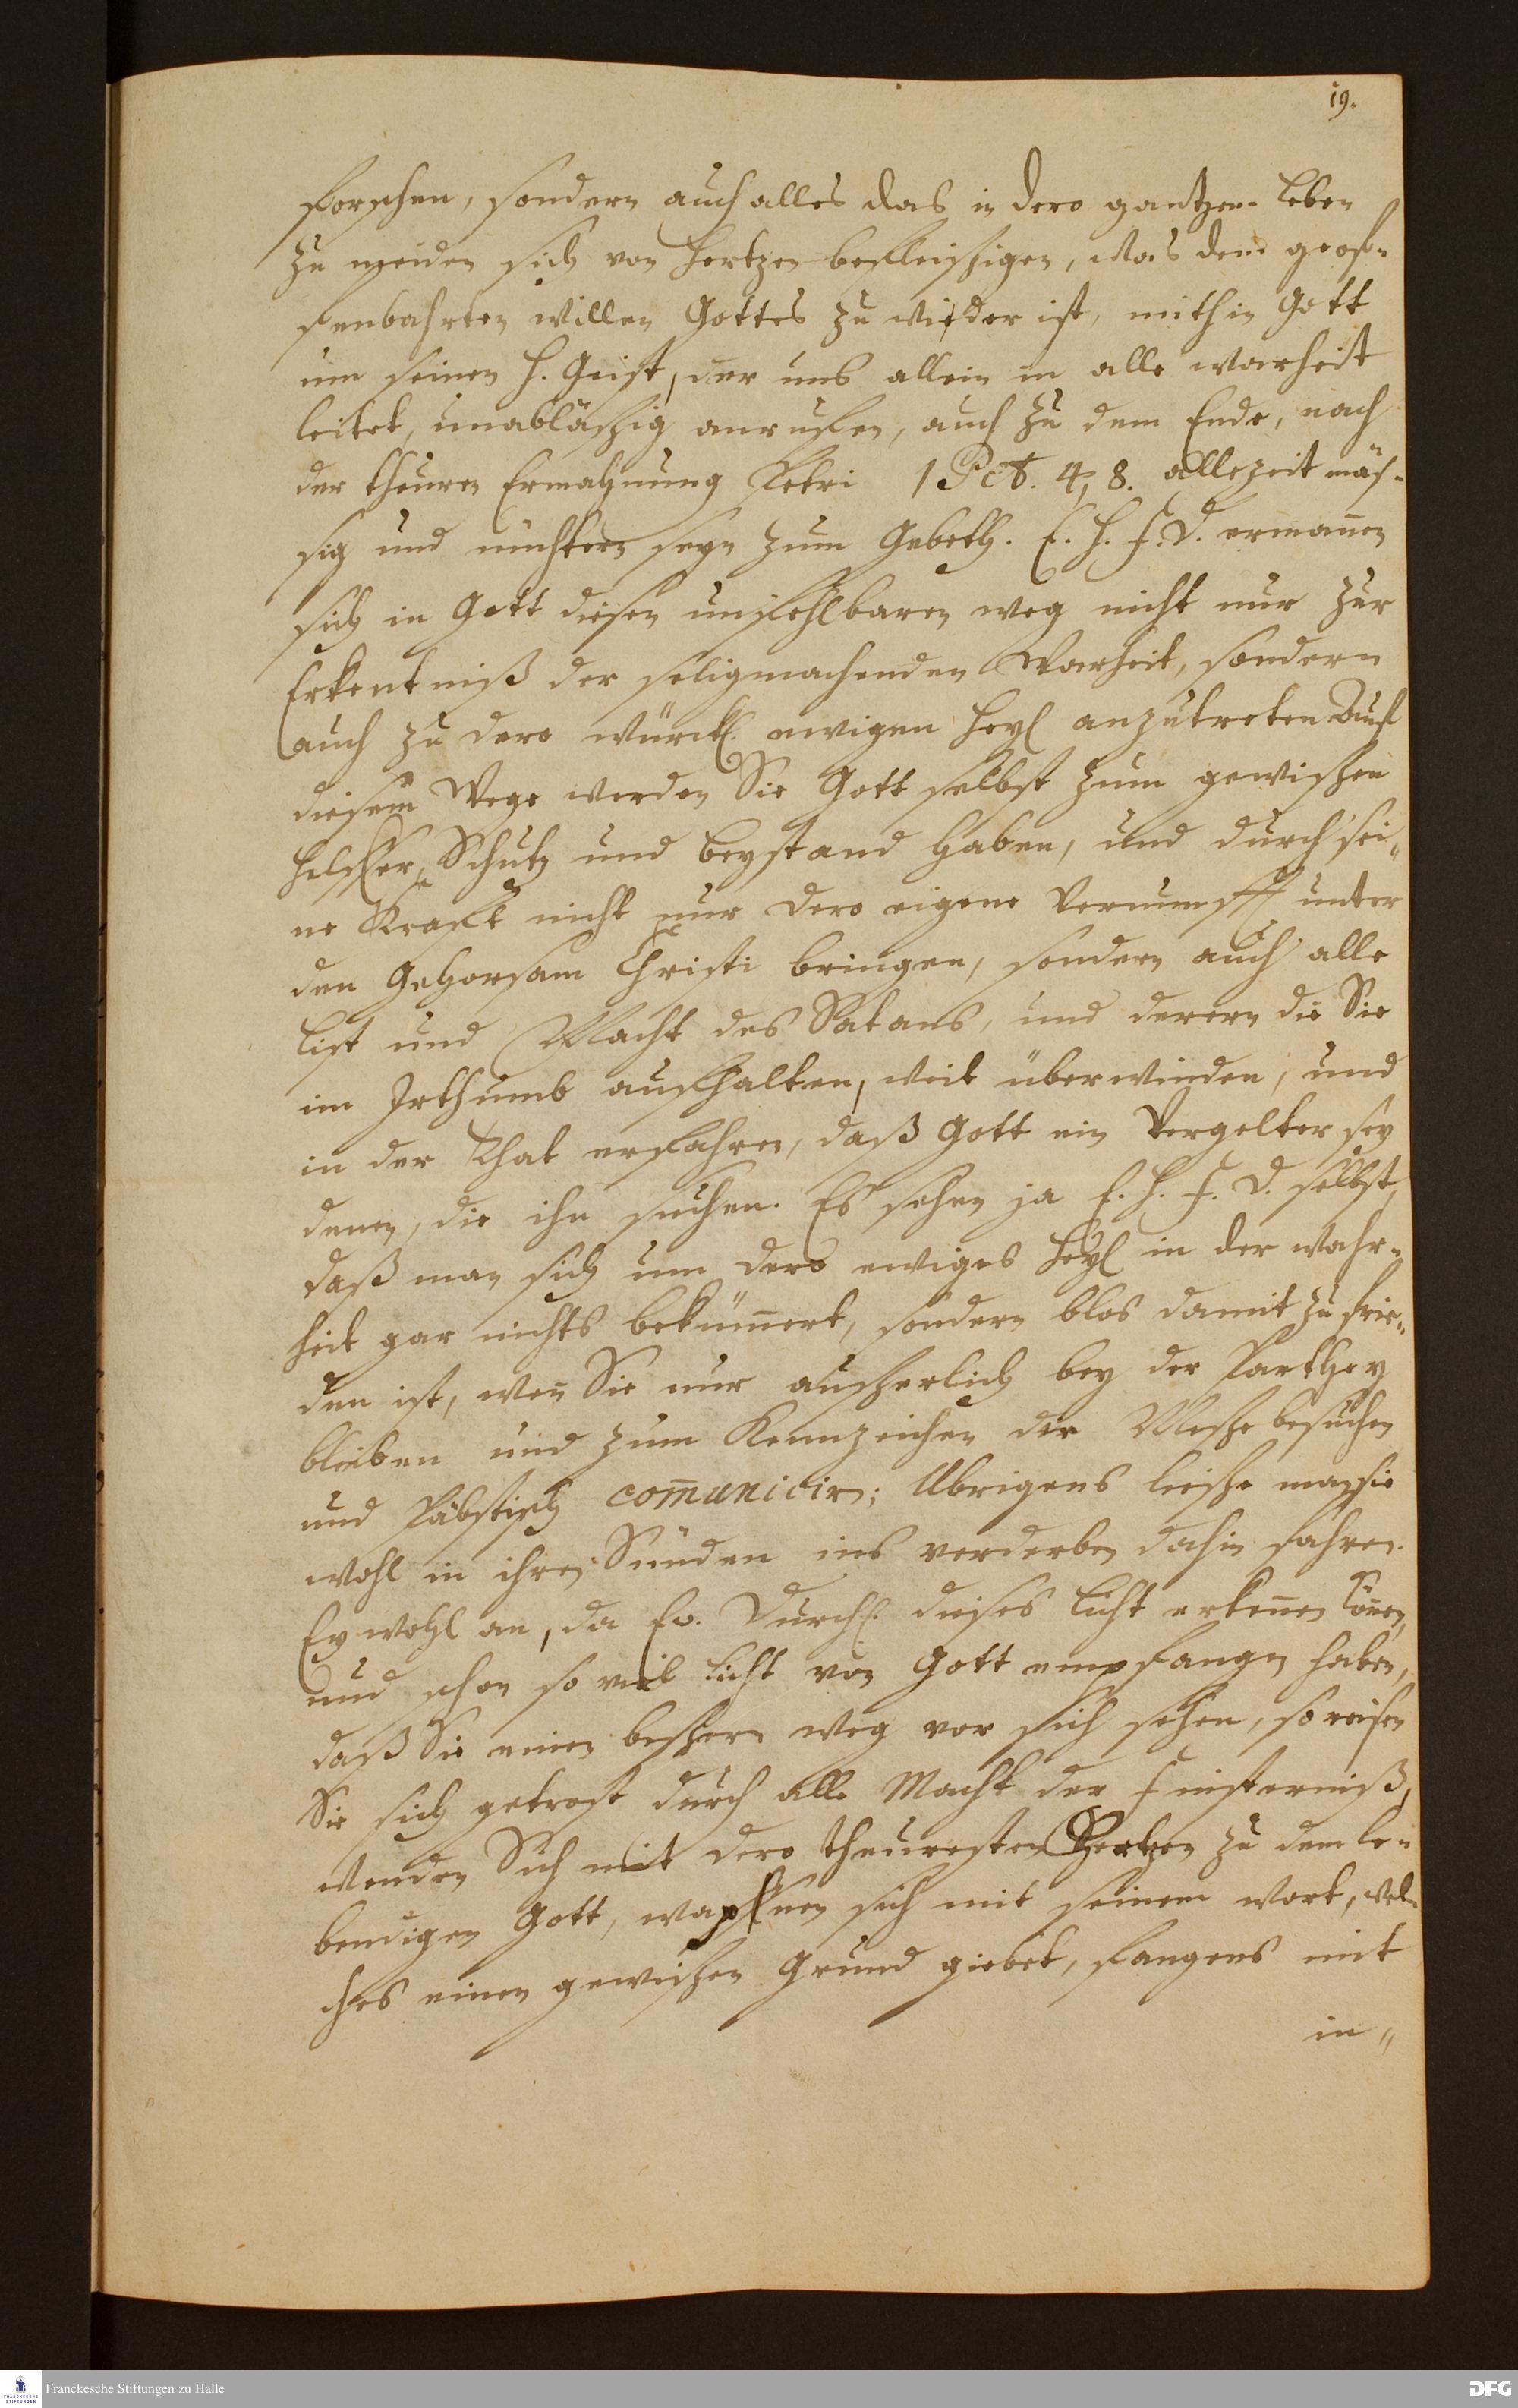 19.
forschen, sondern auch alles das in dero gantzem Leben
zu meiden sich von Hertzen befleißigen, was dem geof-
fenbahrten willen Gottes zu wieder ist, mithin Gott
um seinen H. Geist, der uns allein in alle warheit
leitet, unabläßig anruffen, auch zu dem Ende, nach
der theuren Ermahnung Petri 1 Pet. 4, 8. allezeit mäs-
sig und nüchtern seyn zum Gebeth. E. H. F. D. ermañen
sich in Gott diesen unfehlbaren weg nicht nur zur
Erkentniß der seligmachenden Warheit, sondern
auch zu dero würckl. ewigen Heyl anzutreten Auf
diesem Wege werden Sie Gott selbst zum gewißen
Helffer, Schutz und beystand haben, und durch sei-
ne Krafft nicht nur dero eigene Vernunfft unter
den Gehorsam Christi bringen, sondern auch alle
List und Macht des Satans, und derern die Sie
im Irthumb aufhalten, weit überwinden, und
in der That erfahren, daß Gott ein Vergelter sey
denen, die ihn suchen. Es sehen ja E. H. F. D. selbst,
daß man sich um dero ewiges Heyl in der wahr-
heit gar nichts bekümert, sondern blos damit zu frie-
den ist, weñ Sie nur äuserlich bey der Parthey
bleiben und zum Kennzeichen der Messe besuchen
und Päbstisch comuniciren; Ubrigens ließe man sie
wohl in ihren Sünden ins verderben dahin fahren.
Ey wohl an, da Ew. Durchl. dieses Licht erkeñen köñen,
und schon so viel Licht von Gott empfangen haben,
daß Sie einen beßern weg vor sich sehen, so reisen
Sie sich getrost durch alle Macht der Finsterniß,
wenden Sich mit dero theuresten Hertzen zu dem le-
bendigen Gott, wapfnen sich mit seinem wort, wel-
ches einen gewißen Grund giebet, fangens mit
in-
Franckesche Stiftungen zu Halle
FRANCKESCHE STIFTUNGEN
DFG